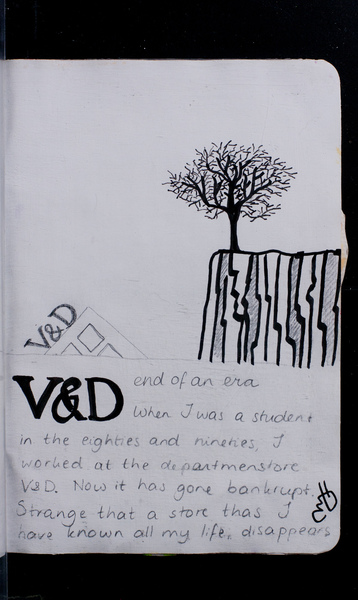 V&D
V&D end of an era
When I was a student
in the eighties and nineties, I
worked at the departmenstore
V&D. Now it has gone bankrupt.
Strange that a store thas I
have known all my life, disappears